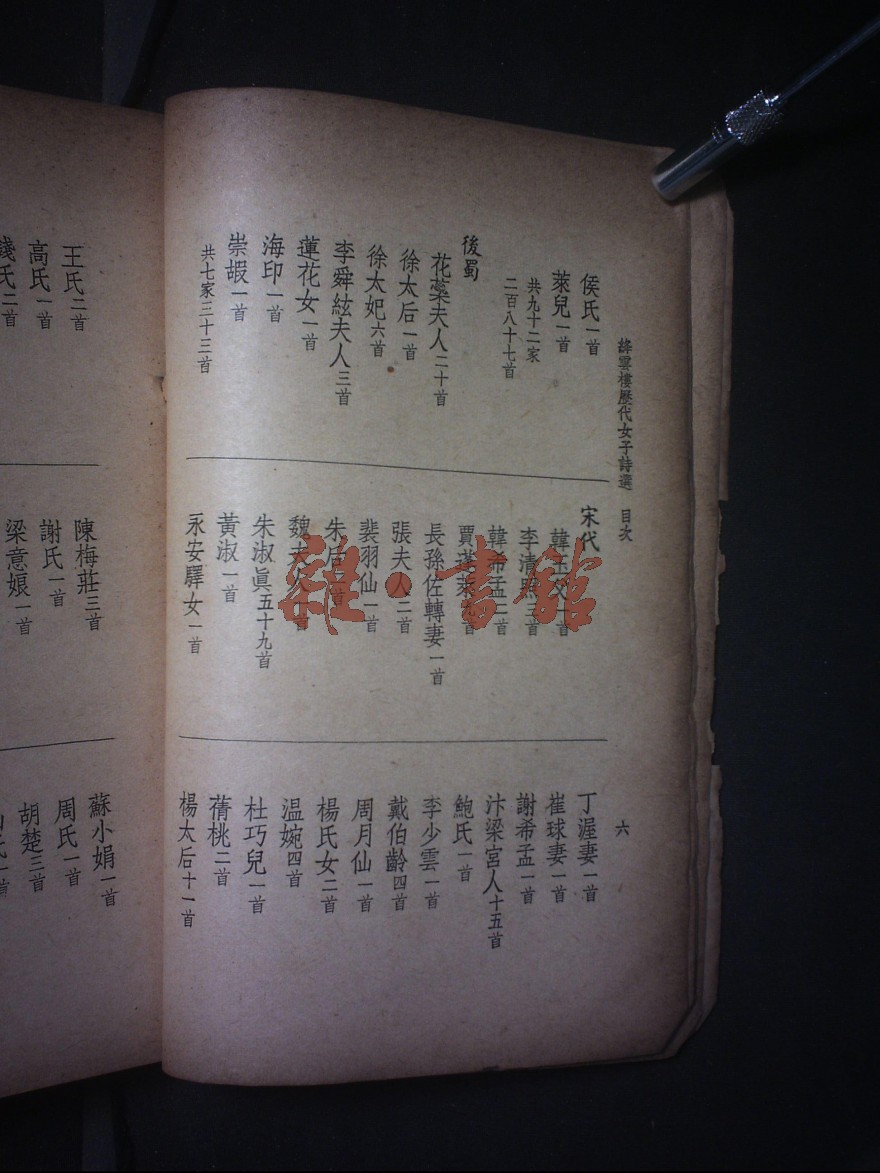 絳雲樓歷代女子詩選　目次
六
侯氏一首
萊兒一首
共九十二家
二百八十七首
後蜀
花蕊夫人二十首
徐太后一首
徐太妃六首
李舜絃夫人三首
蓮花女一首
海印一首
崇嘏一首
共七家三十三首
宋代
韓玉父一首
李清照三首
韓希孟一首
賈蓬萊 首
長孫佐轉妻一首
張夫人二首
裴羽仙一首
朱后 首
魏夫人 首
朱淑眞五十九首
黃淑一首
永安驛女一首
丁渥妻一首
崔球妻一首
謝希孟一首
汴梁宮人十五首
鮑氏一首
李少雲一首
戴伯齡四首
周月仙一首
楊氏女二首
温婉四首
杜巧兒一首
蒨桃二首
楊太后十一首
王氏二首
高氏一首
錢氏二首
陳梅莊三首
謝氏一首
梁意娘一首
蘇小娟一首
周氏一首
胡楚三首
氏一首
雜·書館